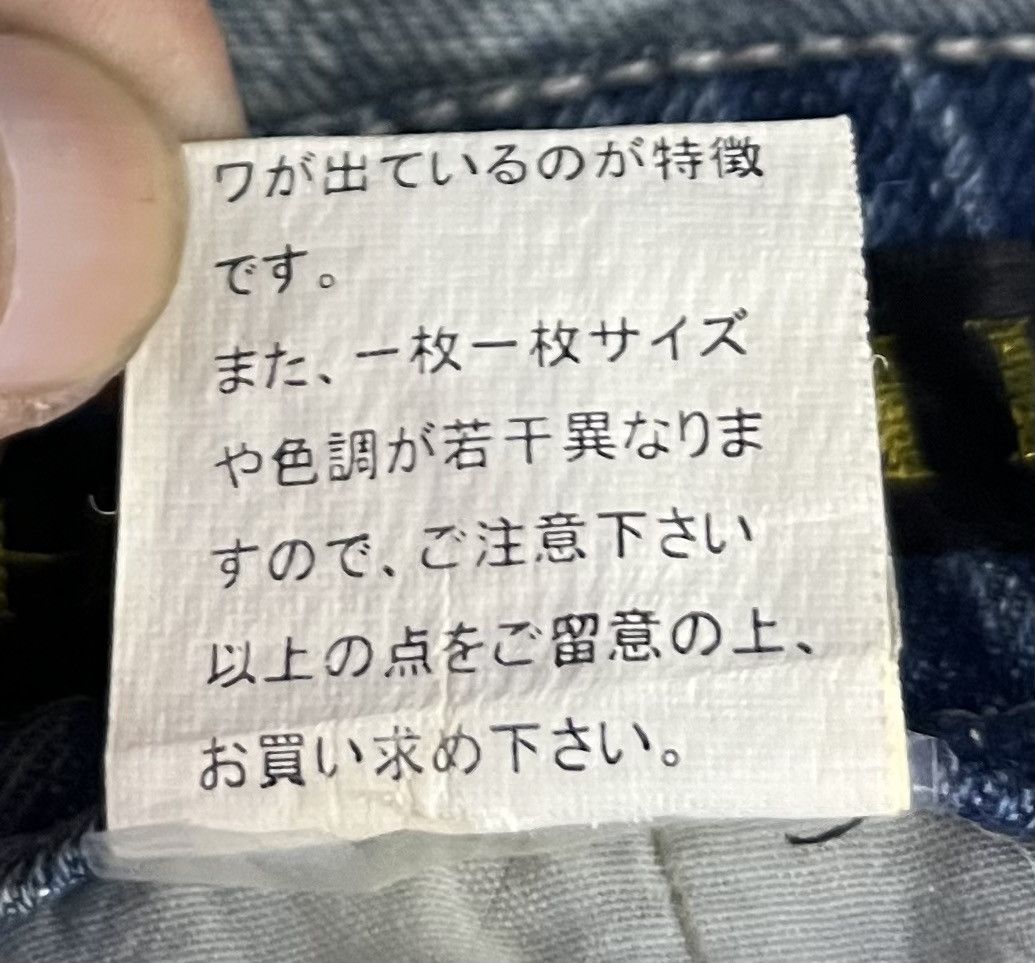 ワが出ているのが特徴
です。
また、一枚一枚サイズ
や色調が若干異なりま
すので、ご注意下さい
以上の点をご留意の上、
お買い求め下さい。